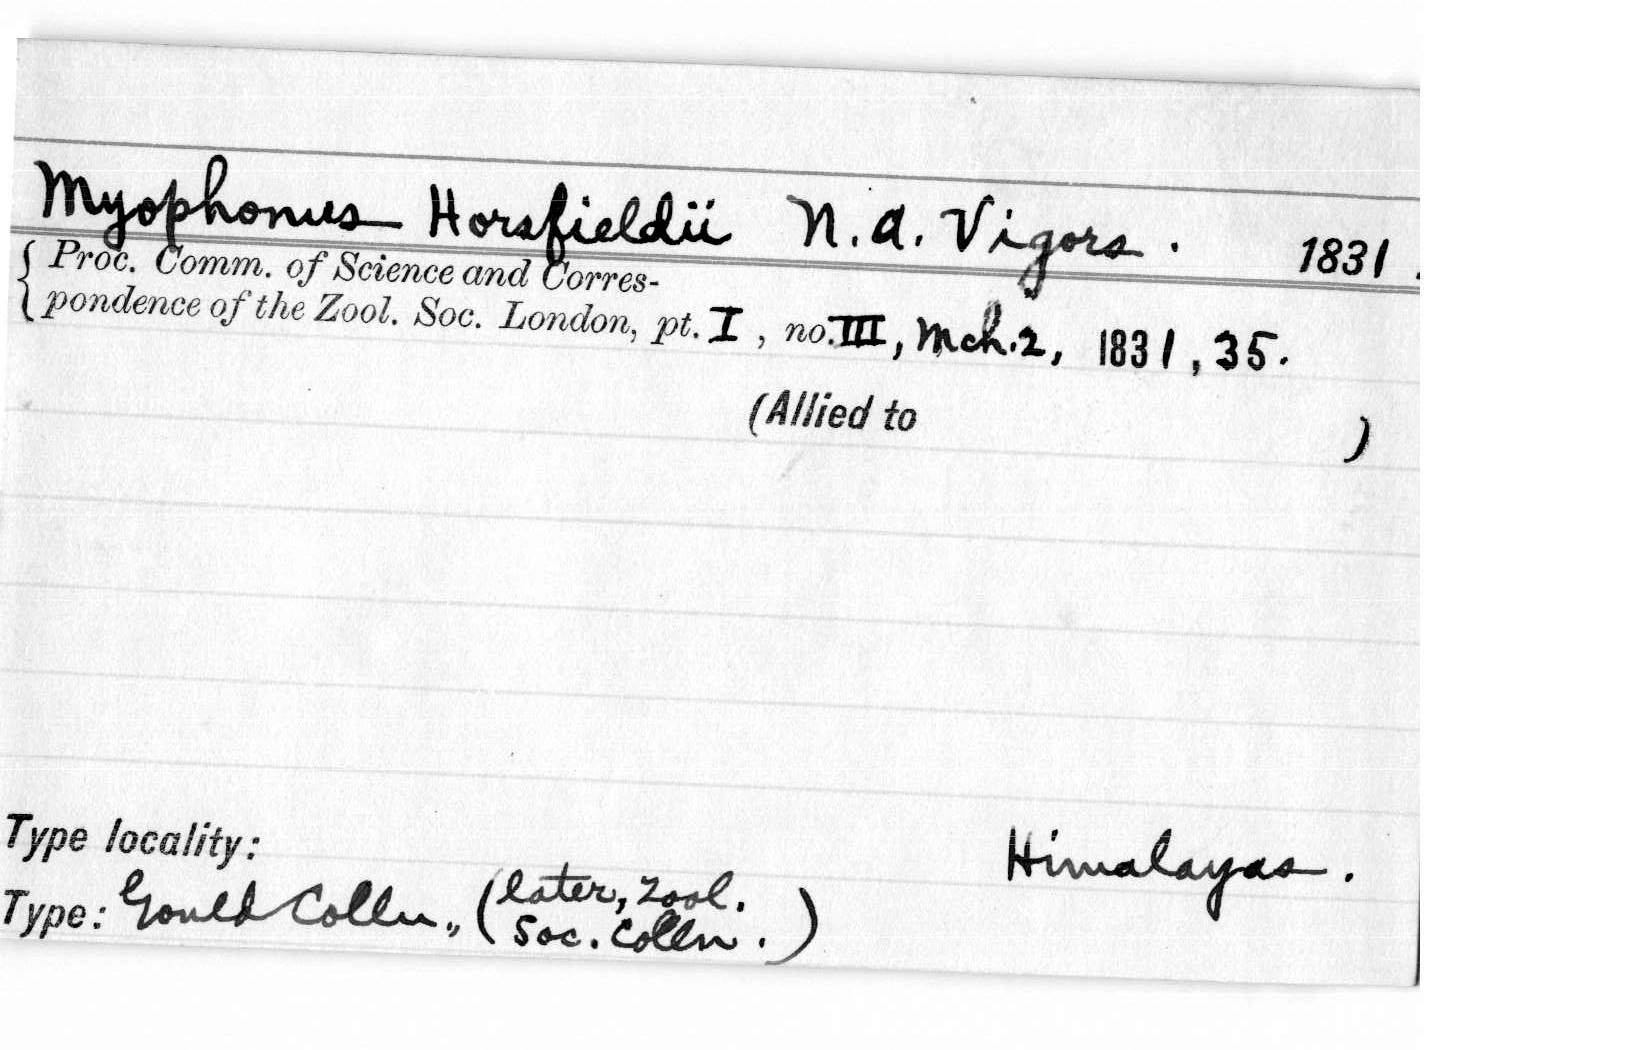 Myophonus Horsfieldii N. A. Vigors. 1831.
Proc. Comm. of Science and Corres-
pondence of the Zool. Soc. London, pt. I, no. III, Mch. 2, 1831, 35.
(Allied to )
Type locality: Himalayas.
Type: Gould Colln., (later, Zool.
Soc. Colln.)